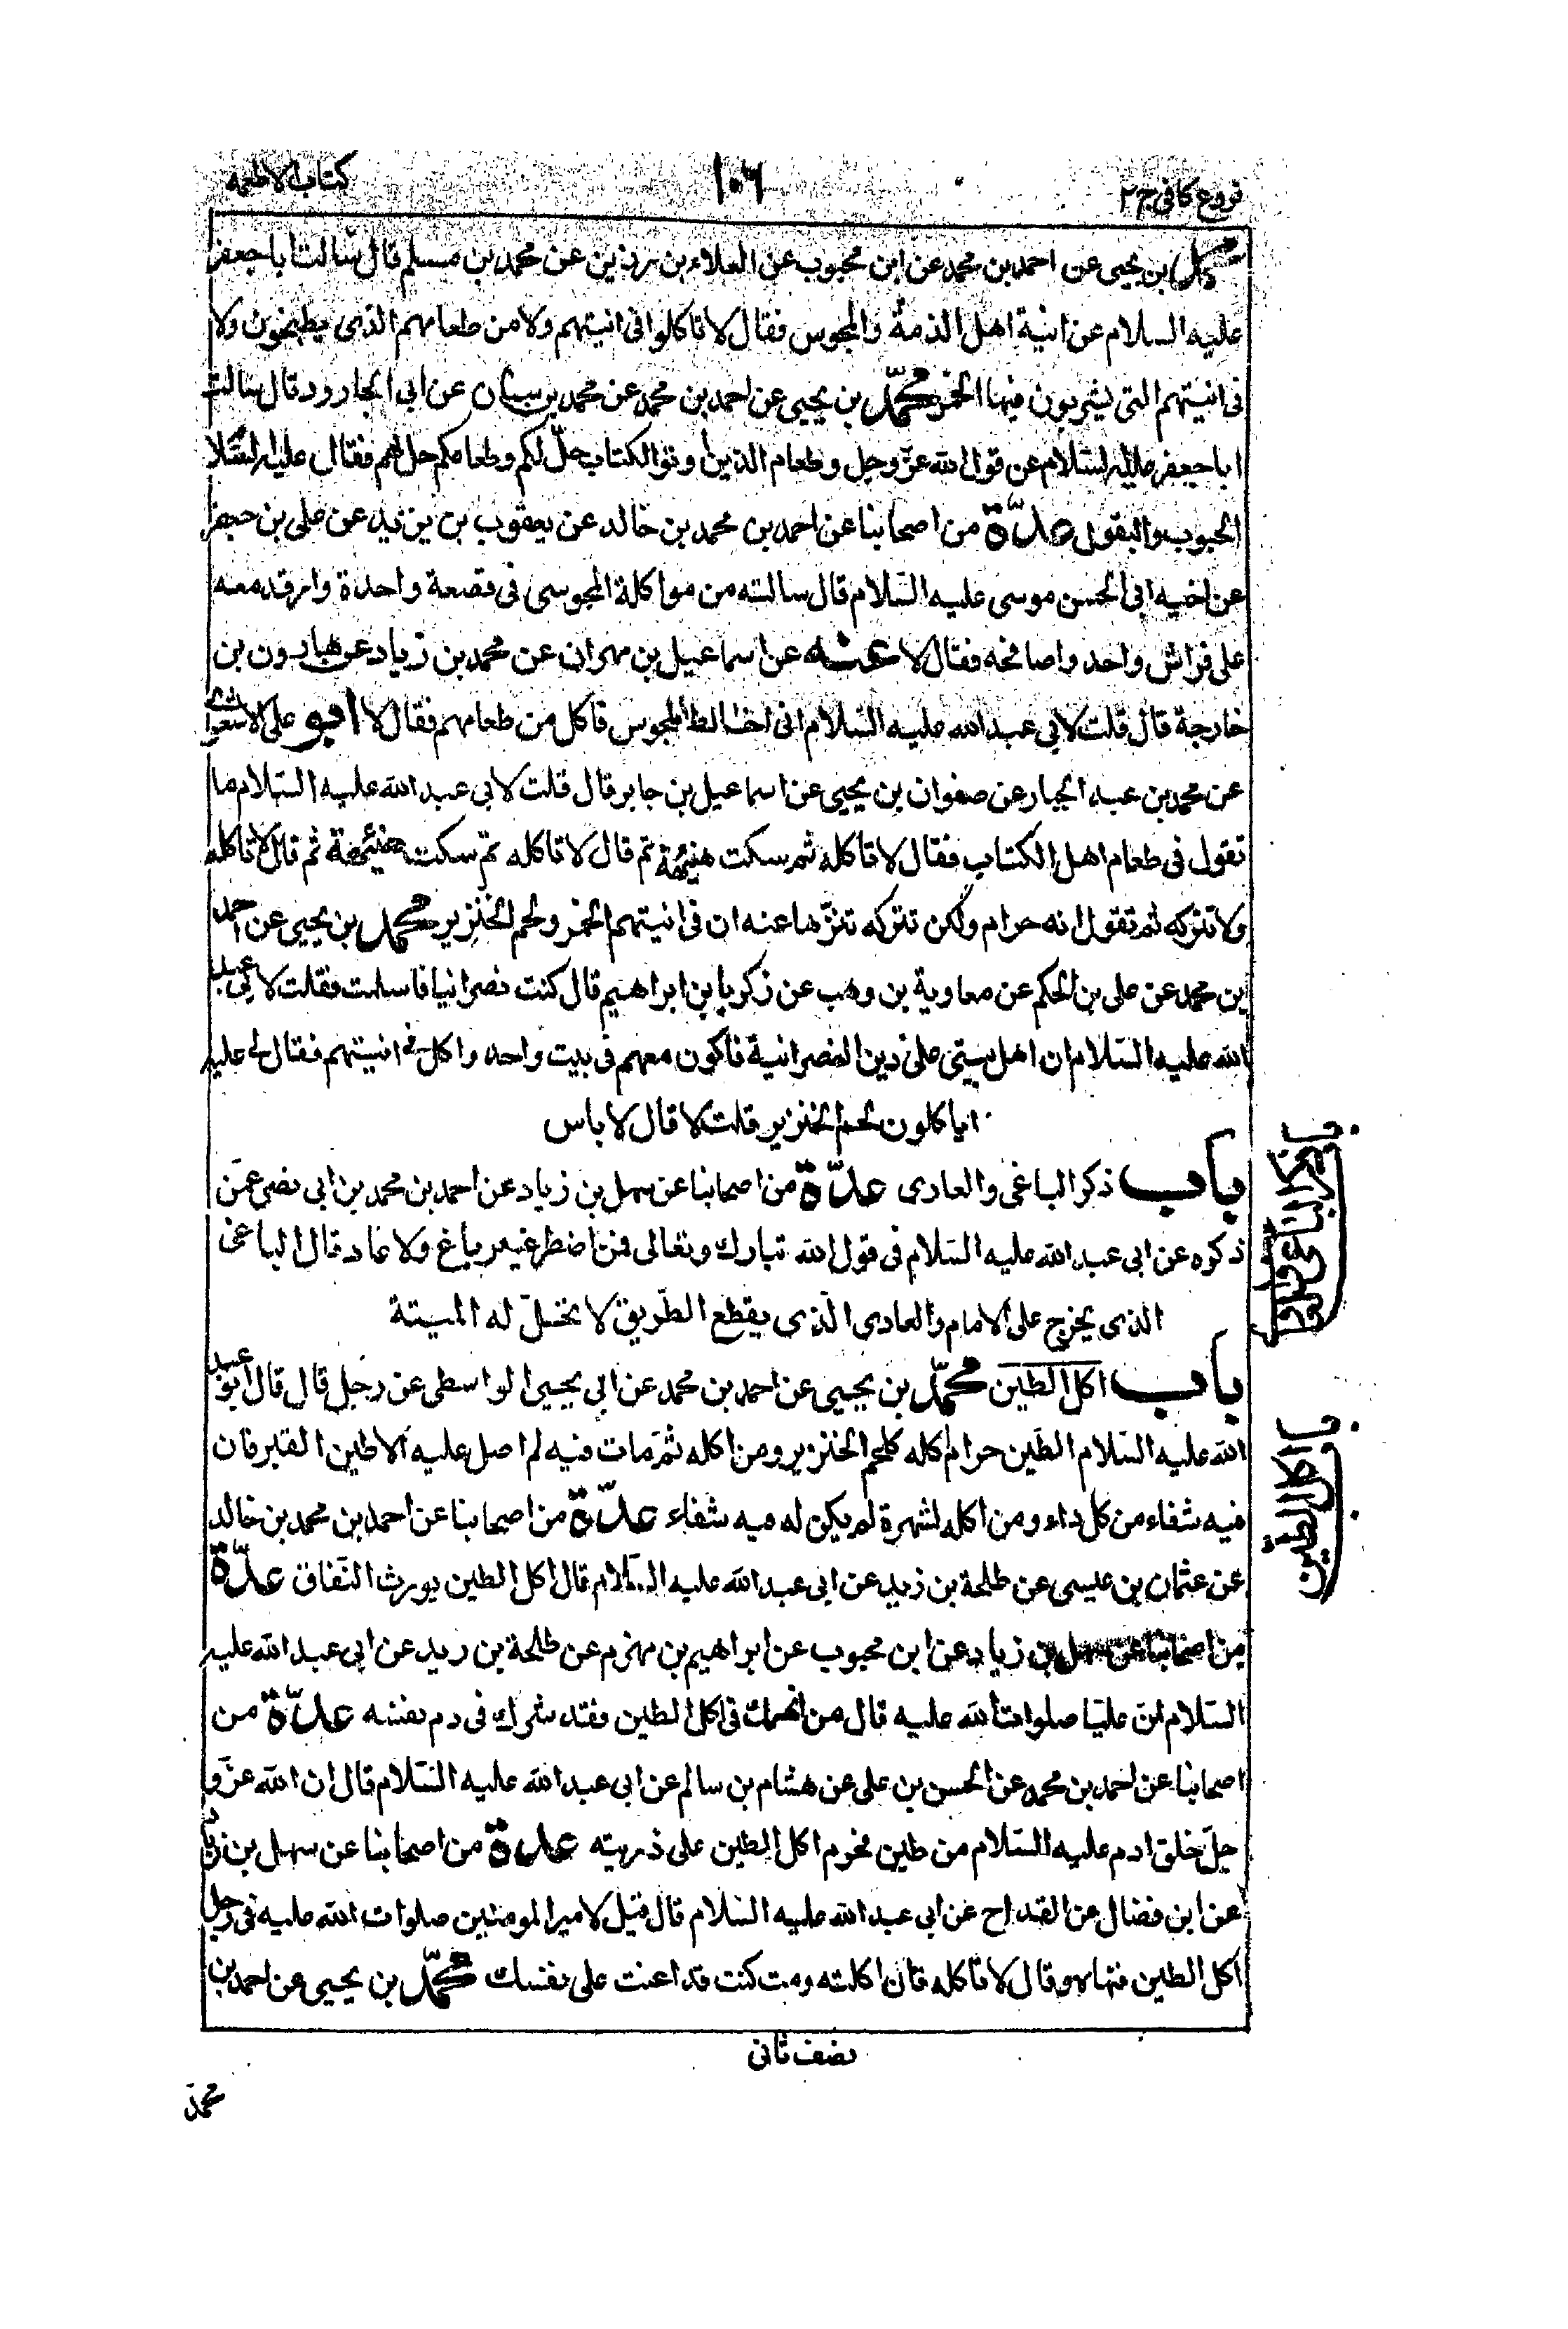 فروع كافى ج٢
١٠٦
كتاب الاطعمه
محمد بن يحيى عن احمد بن محمد عن ابن محبوب عن العلاء بن رزين عن محمد بن مسلم قال سالت ابا جعفر
عليه السلام عن انية اهل الذمة والمجوس فقال لا تاكلوا فى انيتهم ولا من طعامهم الذى يطبخون ولا
فى انيتهم التى يشربون فيها الخمر محمّد بن يحيى عن احمد بن محمد عن محمد بن سنان عن ابى الجارود قال سالت
ابا جعفر عليه السلام عن قول الله عزّ وجل وطعام الذين اوتوا الكتاب حلّ لكم وطعامكم حل لهم فقال عليه السّلام
الحبوب والبقول عدّة من اصحابنا عن احمد بن محمد بن خالد عن يعقوب بن يزيد عن على بن جعفر
عن اخيه ابى الحسن موسى عليه السّلام قال سالته من مواكلة المجوسى فى قصعة واحدة وارقد معه
على فراش واحد واصافحه فقال لا عنه عن اسماعيل بن مهران عن محمد بن زياد عن هارون بن
خارجة قال قلت لابى عبد الله عليه السّلام انى اخالط المجوس فاكل من طعامهم فقال لا ابو على الاشعرى
عن محمد بن عبد الجبار عن صفوان بن يحيى عن اسماعيل بن جابر قال قلت لابى عبد الله عليه السّلام ما
تقول فى طعام اهل الكتاب فقال لا تاكله ثم سكت هنيئة ثم قال لا تاكله ثمّ سكت هنيئة ثم قال لا تاكله
ولا تتركه ثم تقول انه حرام ولكن تتركه تنزّها عنه ان فى انيتهم الخمر ولحم الخنزير محمد بن يحيى عن احمد
بن محمد عن على بن الحكم عن معاوية بن وهب عن زكريا بن ابراهيم قال كنت نصرانيا فاسلمت فقلت لابى عبد
الله عليه السّلام ان اهل بيتى على دين النصرانية فاكون معهم فى بيت واحد واكل فى انيتهم فقال لى عليه
اياكلون لحم الخنزير قلت لا قال لا باس
باب ذكر الباغى والعادى عدّة من اصحابنا عن سهل بن زياد عن احمد بن محمد بن ابى نصر عمّن
ذكره عن ابى عبد الله عليه السّلام فى قول الله تبارك وتعالى فمن اضطر غير باغ ولا عاد قال الباغى
الذى يخرج على الامام والعادى الّذى يقطع الطّريق لا تحلّ له الميتة
باب اكل الطين محمّد بن يحيى عن احمد بن محمد عن ابى يحيى الواسطى عن رجل قال قال ابو عبد
الله عليه السّلام الطّين حرام اكله كلحم الخنزير ومن اكله ثمّ مات فيه لم اصل عليه الا طين القبر فان
فيه شفاء من كل داء ومن اكله لشهرة لم يكن له فيه شفاء عدّة من اصحابنا عن احمد بن محمد بن خالد
عن عثمان بن عيسى عن طلحة بن زيد عن ابى عبد الله عليه السّلام قال اكل الطين يورث النّفاق عدّة
من اصحابنا عن سهل بن زياد عن ابن محبوب عن ابراهيم بن مهزم عن طلحة بن زيد عن ابى عبد الله عليه
السّلام انّ عليّا صلوات الله عليه قال من انهمك فى اكل الطين فقد شرك فى دم نفسه عدّة من
اصحابنا عن احمد بن محمد عن الحسن بن على عن هشام بن سالم عن ابى عبد الله عليه السّلام قال ان الله عزّ و
جلّ خلق ادم عليه السّلام من طين فحرم اكل الطين على ذريته عدة من اصحابنا عن سهل بن زياد
عن ابن فضال عن القداح عن ابى عبد الله عليه السّلام قال قيل لامير المومنين صلوات الله عليه فى رجل
اكل الطين فنهاه وقال لا تاكله فان اكلته ومت كنت قد اعنت على نفسك محمّد بن يحيى عن احمد بن
نصف ثانى
محمد
باب ذكر الباغى والعادى
باب اكل الطين